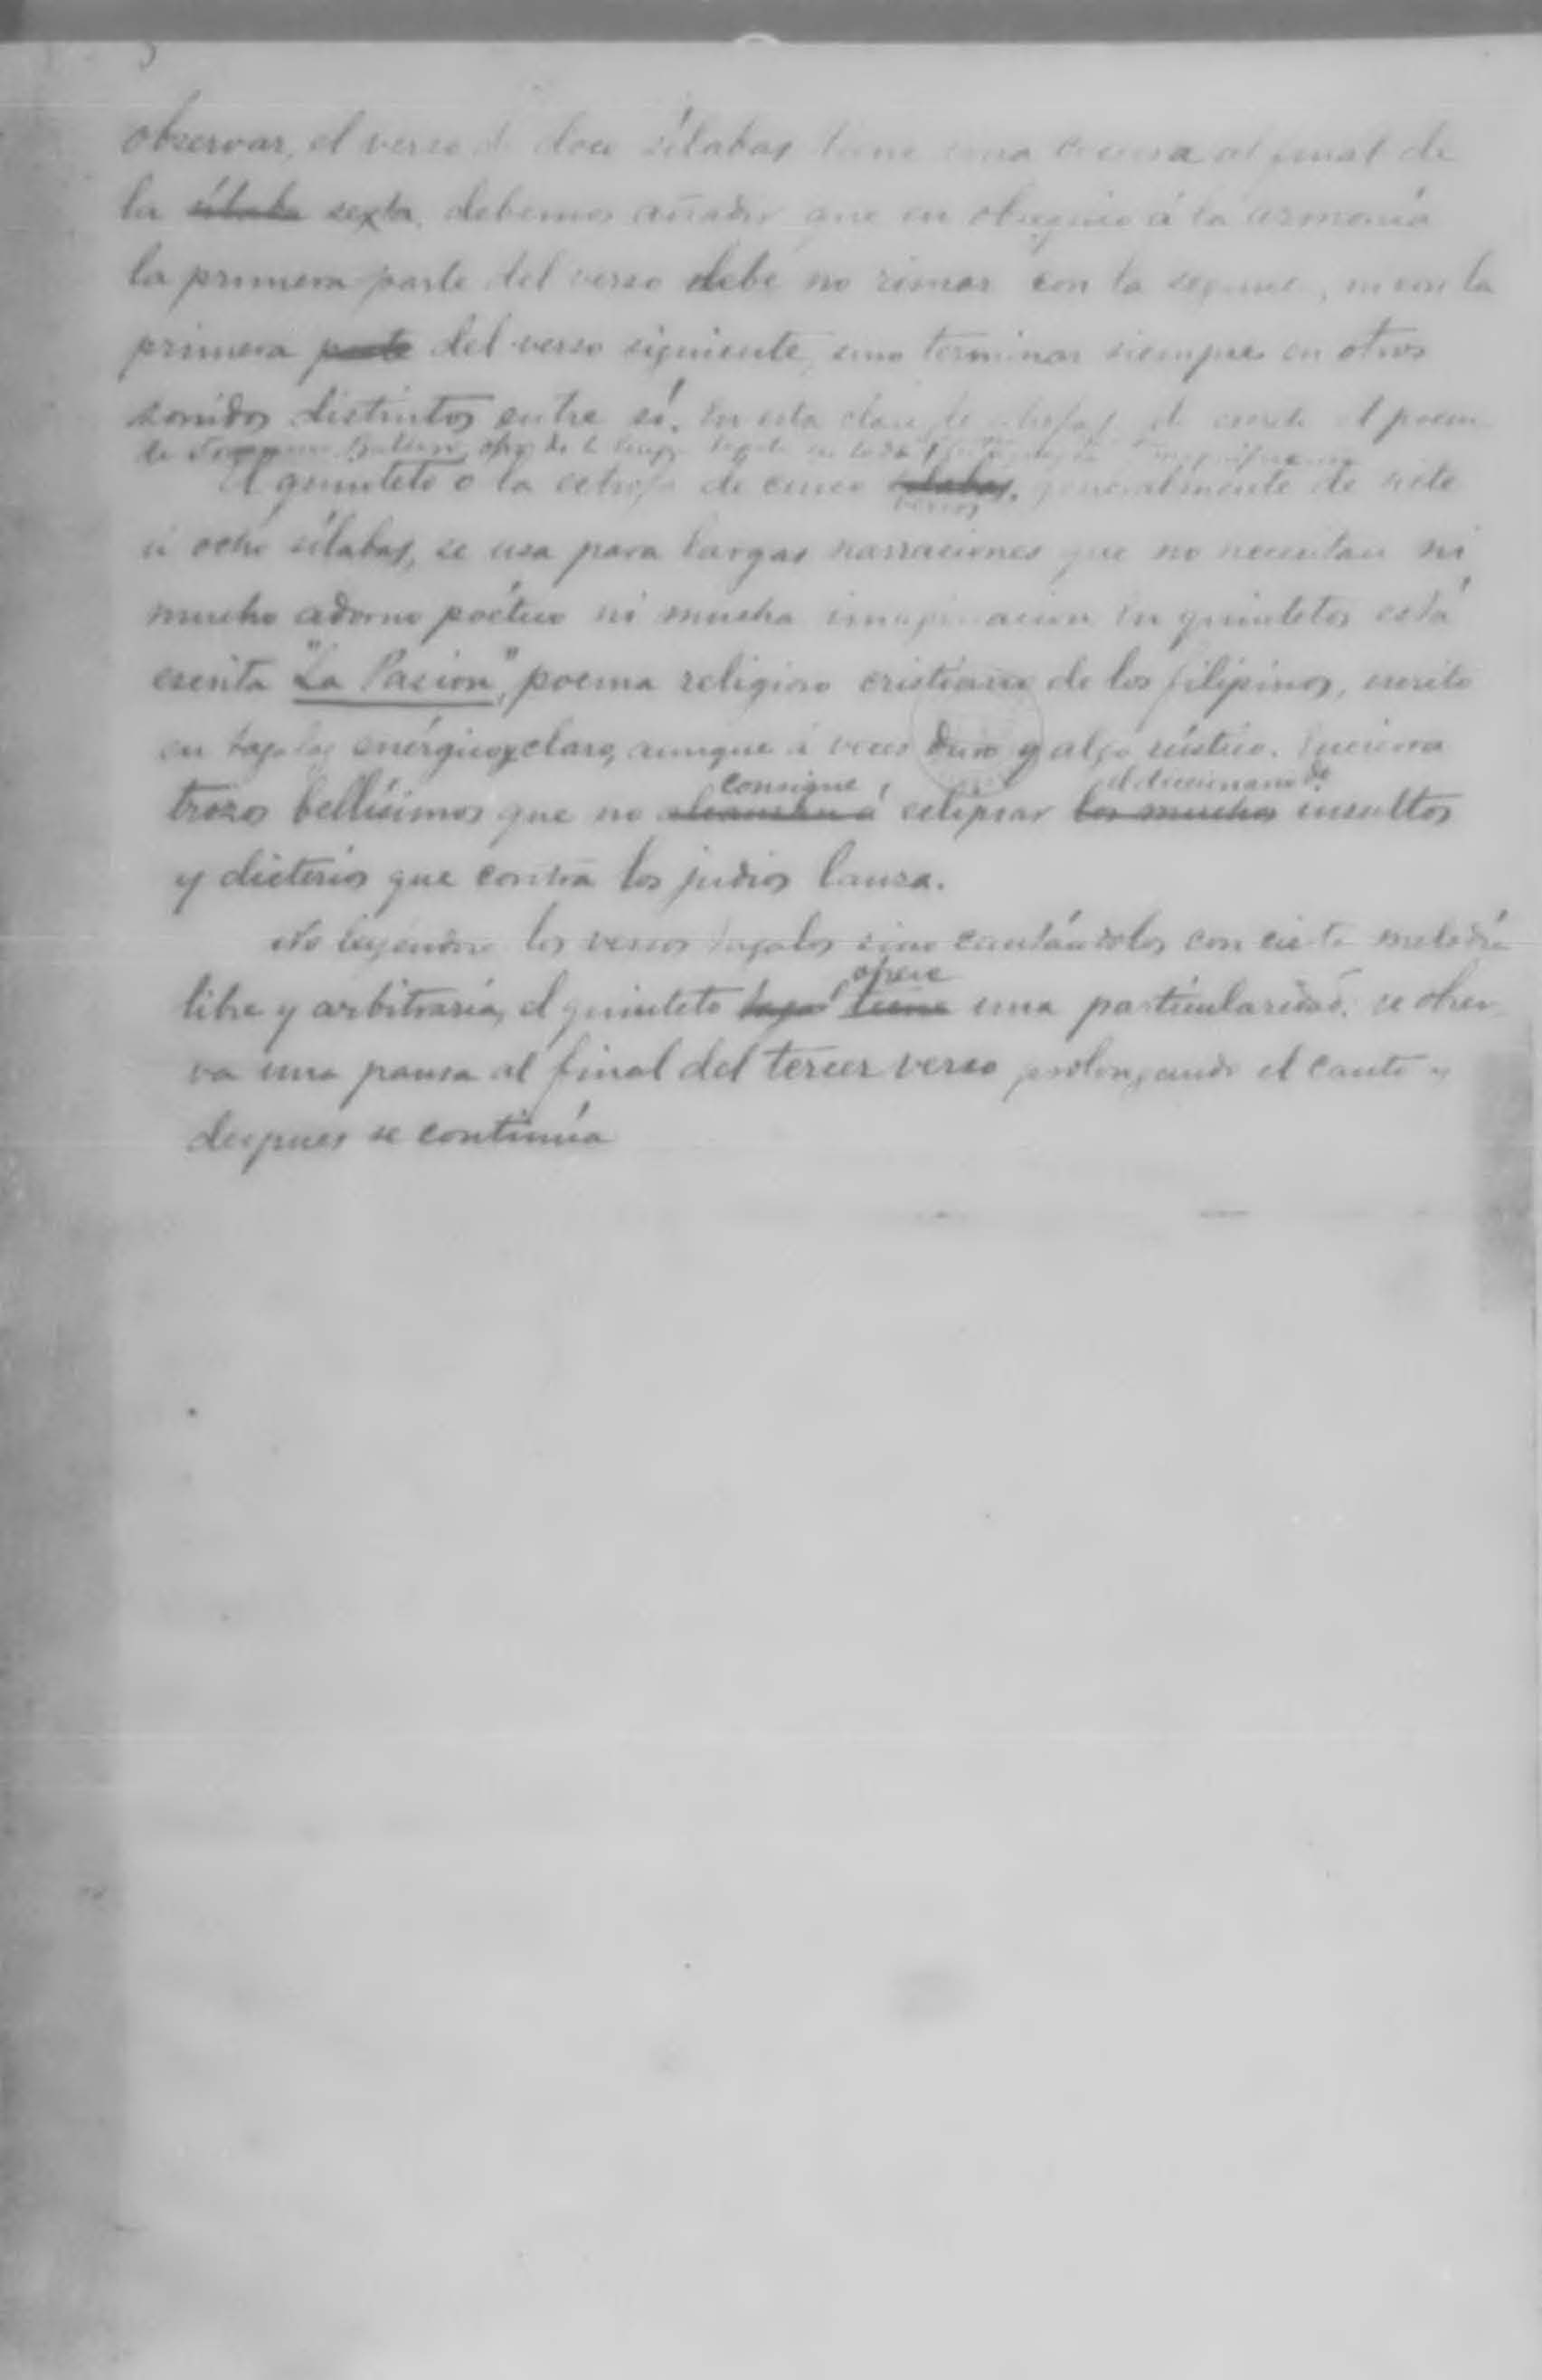 observar, el verso de doce sílabas tiene una cesura al final de
la sílaba sexta. debemos añadir que en obsequio á la armonía
la primera parte del verso debe no rimar con la segunda, ni con la
primera parte del verso siguiente, sino terminar siempre en otros
sonidos distintos entre sí. En esta clase de estrofas escrito el poema
de
El quinteto o la estrofa de cinco sílabas, generalmente de siete
versos
ú ocho sílabas, se usa para largas narraciones que no necesitan ni
mucho adorno poético ni mucha imaginacion En quintetos está
escrita "La Pasion", poema religioso cristiano de los filipinos, escrito
en tagalog enérgico y claro, aunque á veces duro y algo rústico. Encierra
consigue el diccionario de
trozos bellísimos que no alcanzan á eclipsar los muchos insultos
y dicterios que contra los judios lanza.
No leyendose los versos tagalos sino cantándolos con cierta melodía
ofrece
libre y arbitraria, el quinteto tagal tiene una particularidad: se obser
va una pausa al final del tercer verso prolongando el canto y
despues se continúa